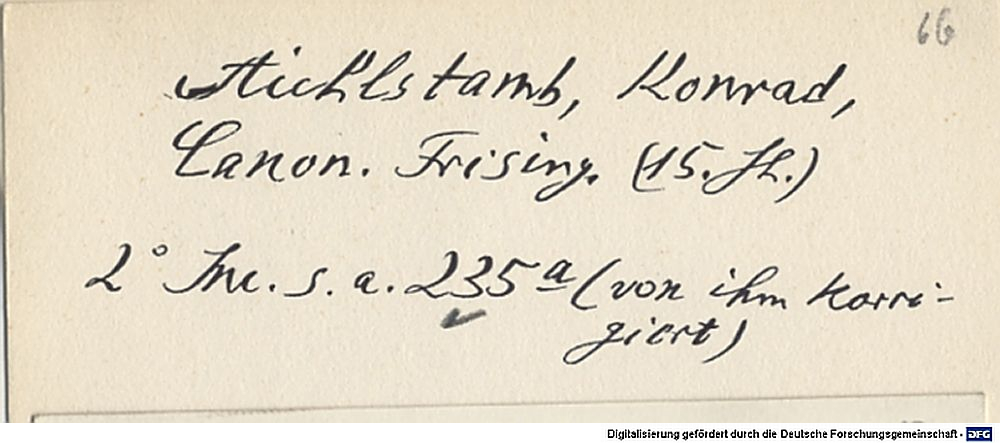 66
Konrad,
Canon. Frising. (15. Jh.)
2° Inc. s. a. 235 a (von ihm korri-
giert)
Digitalisierung gefördert durch die Deutsche Forschungsgemeinschaft - DFG